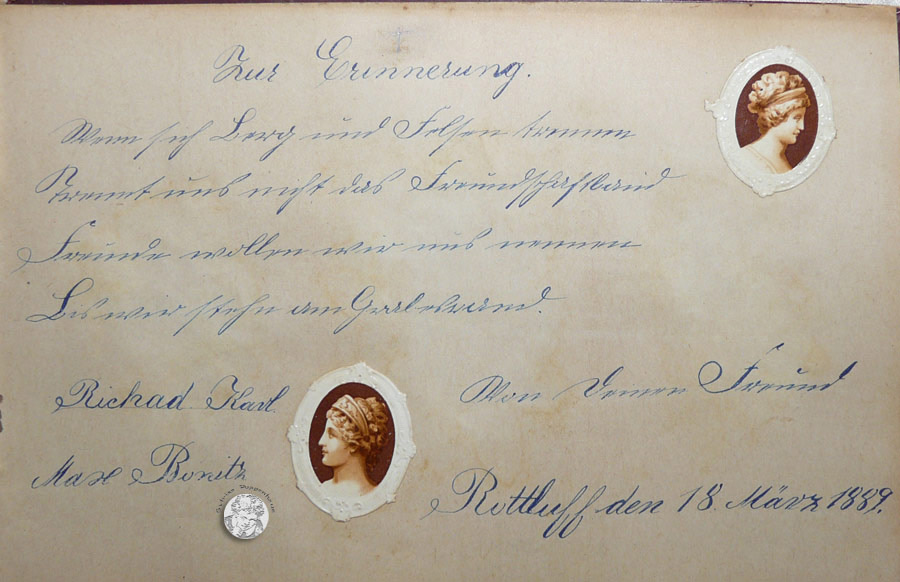 Zur Erinnerung.
Wenn sich Berg und Felsen trennen
Trennt uns nicht das Freundschaftband
Freunde wollen wir uns nennen
Bis wir stehn am Grabesrand.
Von Deinen Freund
Richad Karl
Max Bonitz
Rottluff den 18. März 1889.